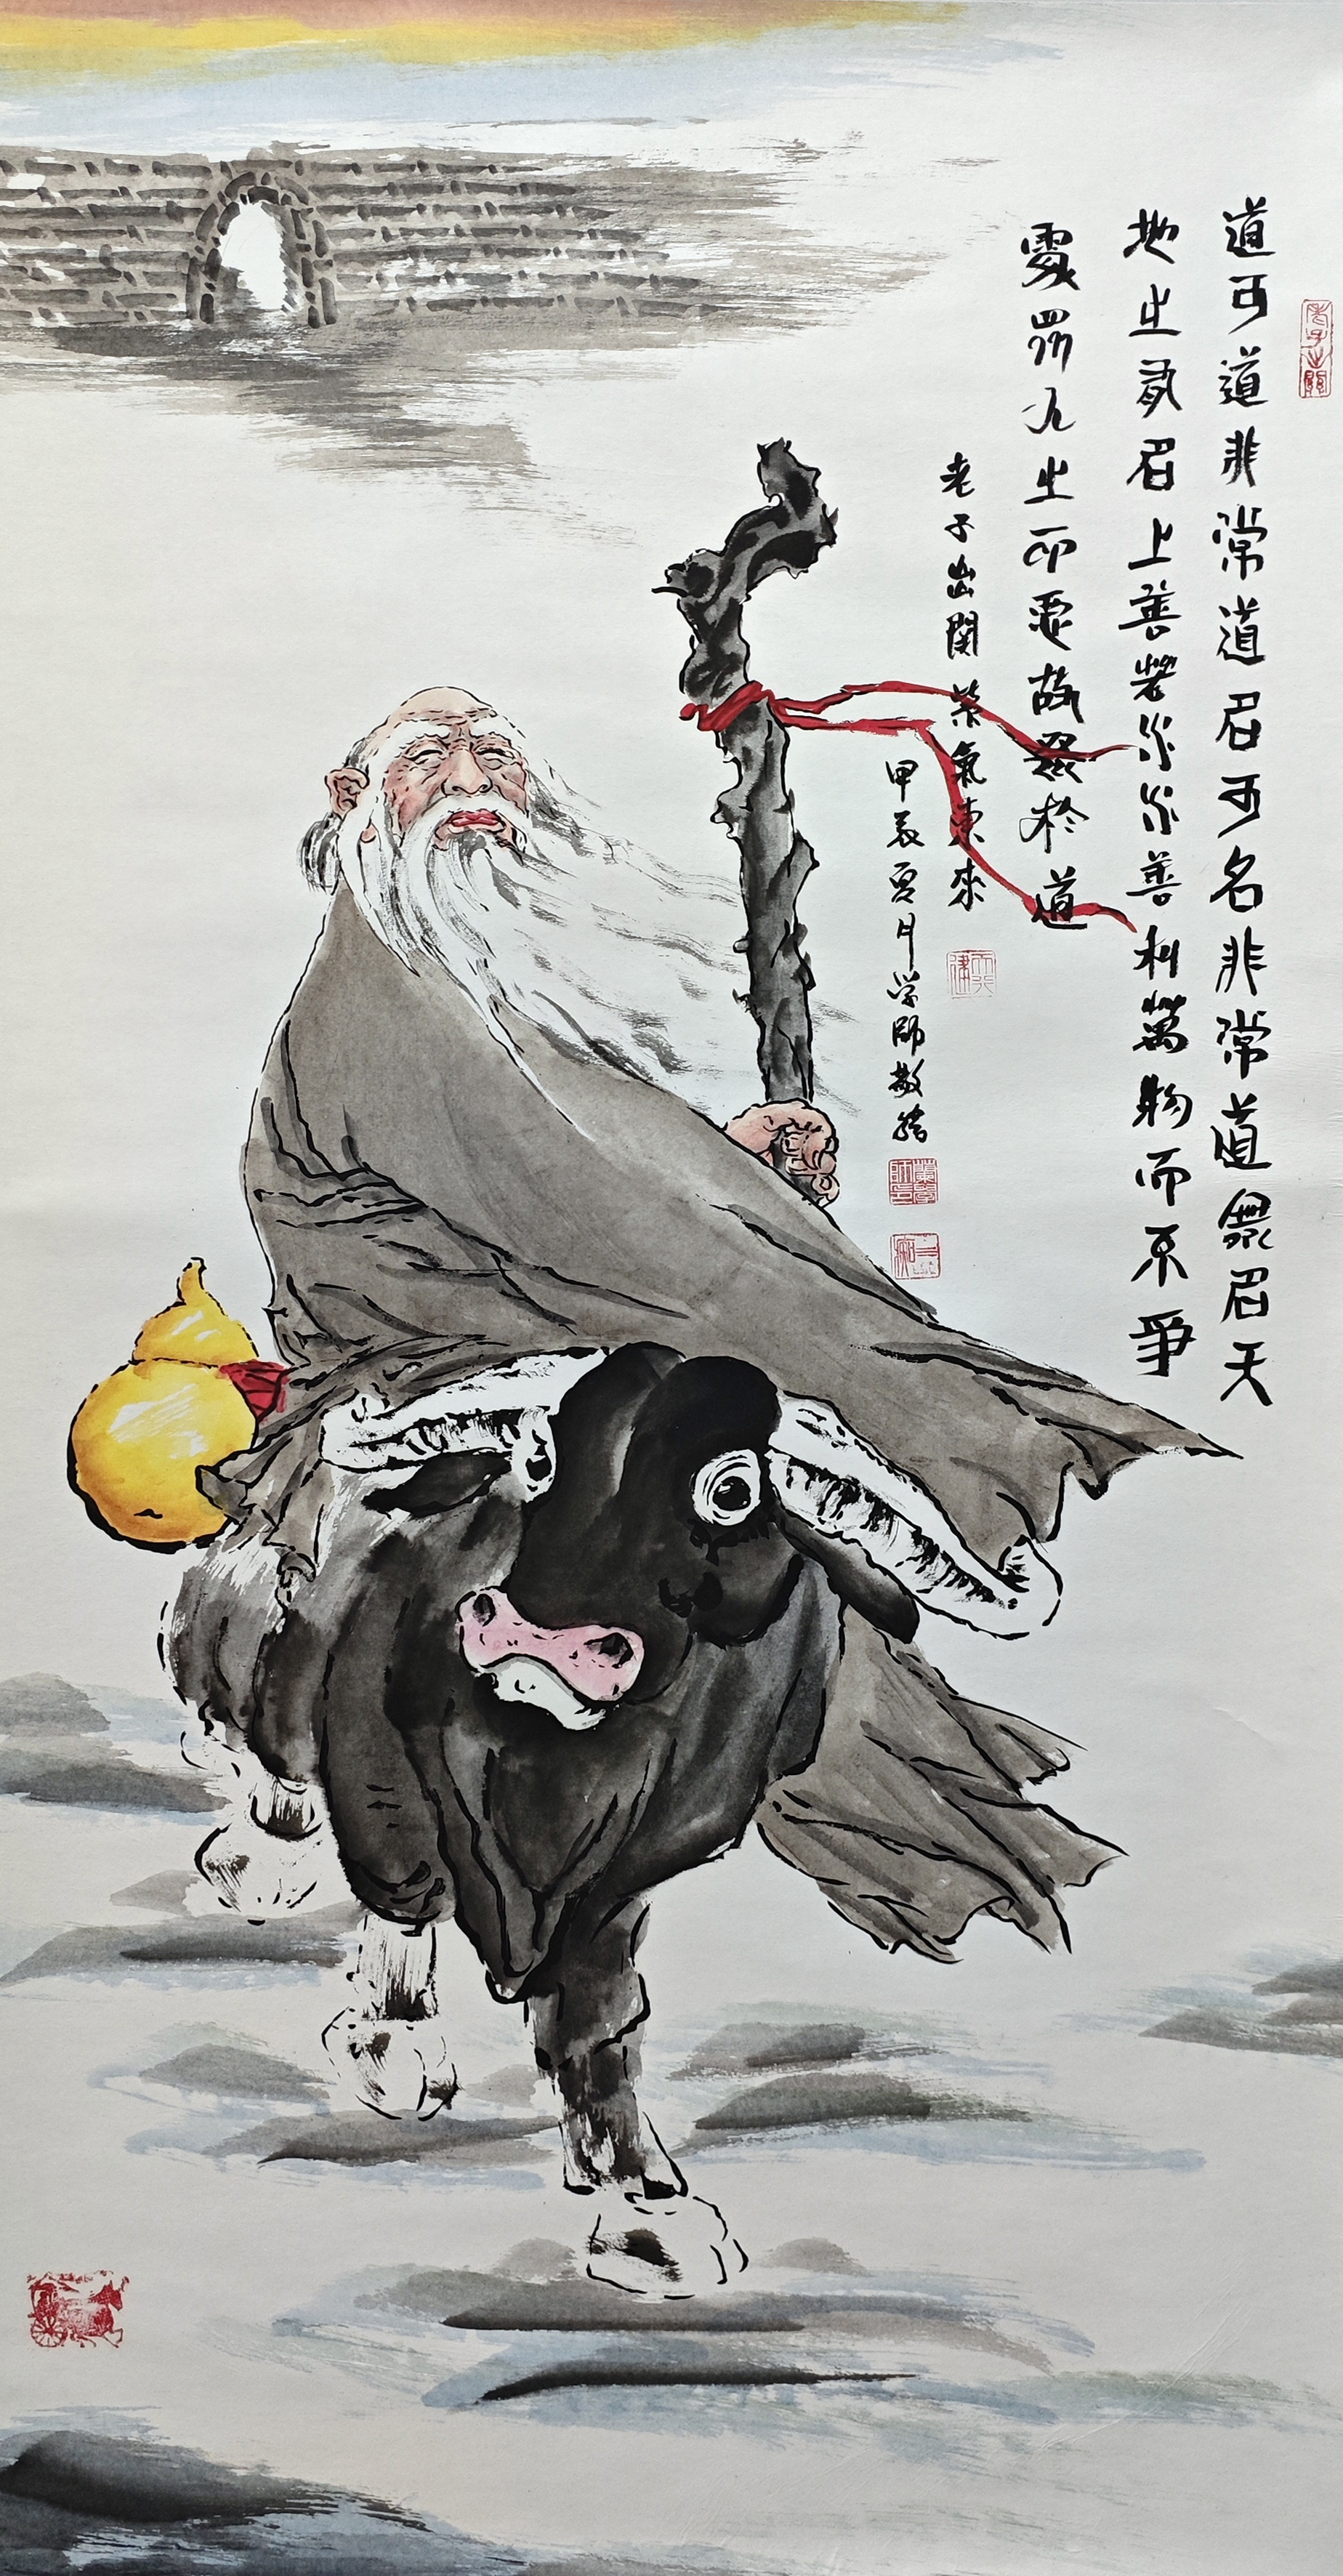 道可道非常道名可名非常道無名天
地之始名上善若水水善利萬物而不爭
處眾人之所惡故幾於道
老子出関紫氣東來
甲辰夏月学師敬繪
老子出關